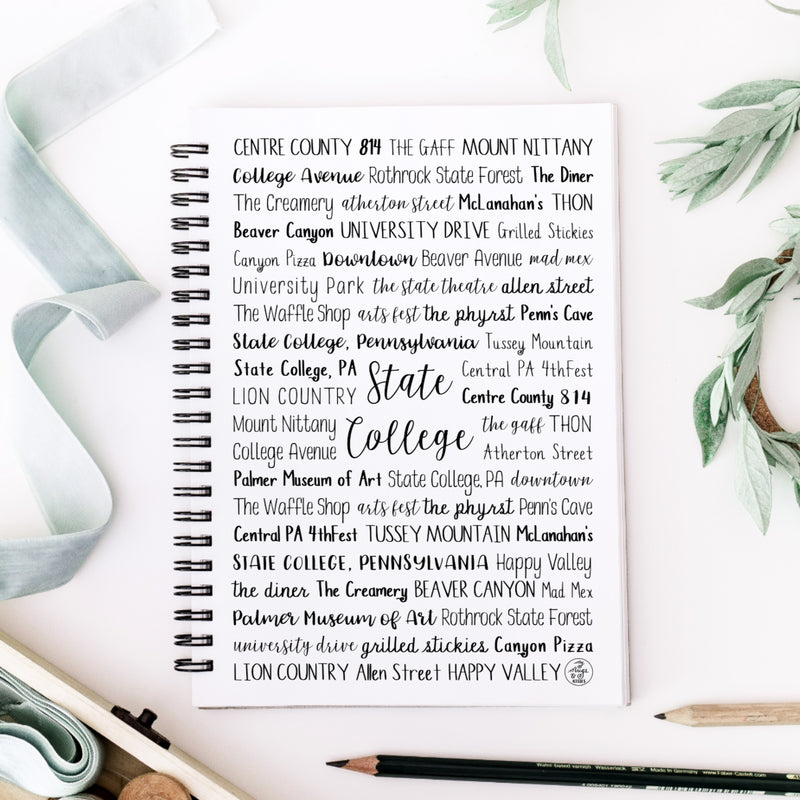 CENTRE COUNTY 814 THE GAFF MOUNT NITTANY
College Avenue Rothrock State Forest The Diner
The Creamery atherton street McLanahan's THON
Beaver Canyon UNIVERSITY DRIVE Grilled Stickies
Canyon Pizza Downtown Beaver Avenue mad mex
University Park the state theatre allen street
The Waffle Shop arts fest the phyrst Penn's Cave
State College, Pennsylvania Tussey Mountain
State College, PA Central PA 4thFest
LION COUNTRY State Centre County 814
Mount Nittany the gaff THON
College Avenue College Atherton Street
Palmer Museum of Art State College, PA downtown
The Waffle Shop arts fest the phyrst Penn's Cave
Central PA 4thFest TUSSEY MOUNTAIN McLanahan's
STATE COLLEGE, PENNSYLVANIA Happy Valley
the diner The Creamery BEAVER CANYON Mad Mex
Palmer Museum of Art Rothrock State Forest
university drive grilled stickies Canyon Pizza
LION COUNTRY Allen Street HAPPY VALLEY
Made in Germany www.Faber-Castell.com